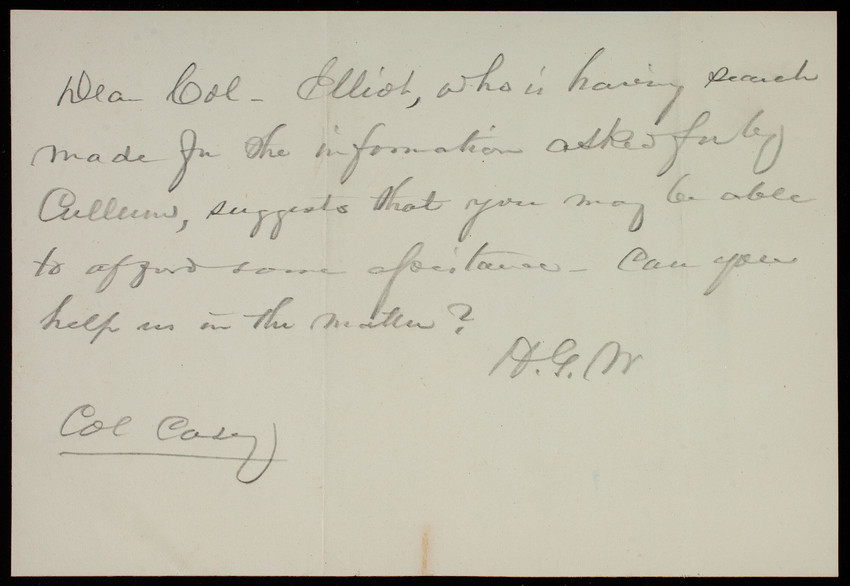 Dear Col - Elliot, who is having search
made for the information asked for by
Cullum, suggests that you may be able
to afford some assistance - Can you
help us in the matter?
H.G.W
Col Casey